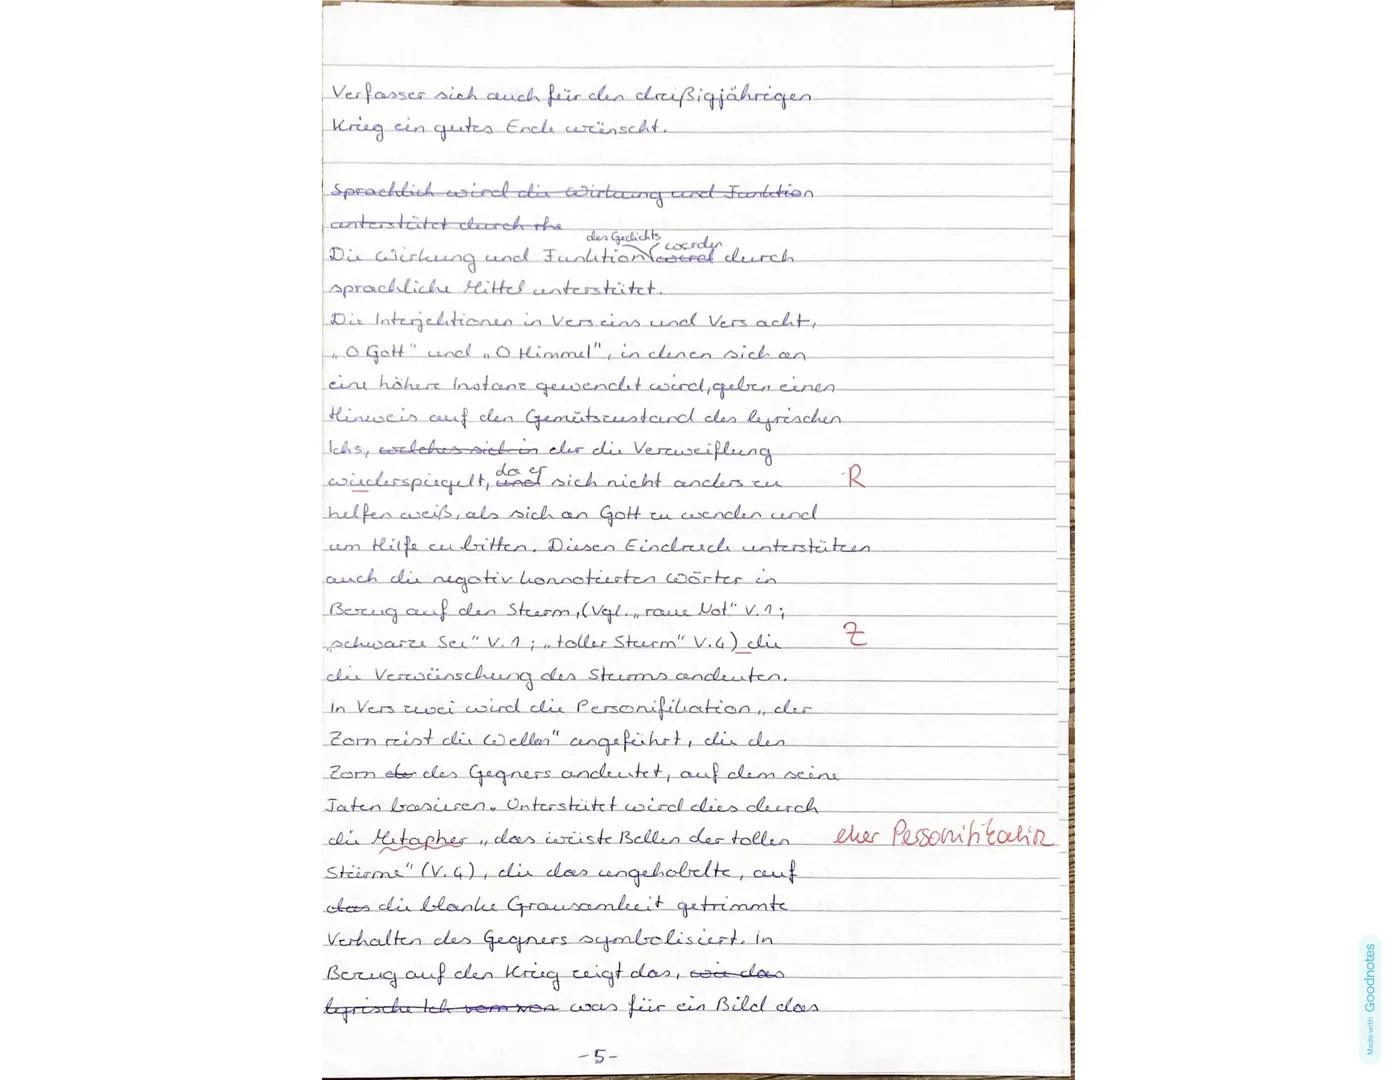 Verfasser sich auch für den dreißigjährigen
Krieg ein gutes Ende wünscht.
Sprachlich wird die Wirkung und Funktion
unterstützt durch rhe
des Gedichts werden
Die Wirkung und Funktion wird durch
sprachliche Mittel unterstützt.
Die Interjektionen in Vers eins und Vers acht,
„O Gott" und „O Himmel", in denen sich an
eine höhere Instanz gewendet wird, geben einen
Hinweis auf den Gemütszustand des lyrischen
Ichs, welches sich in der die Verzweiflung
da er
wiederspiegelt, und sich nicht anders zu R
helfen weiß, als sich an Gott zu wenden und
um Hilfe zu bitten. Diesen Eindruck unterstützen
auch die negativ konnotierten Wörter in
Bezug auf den Sturm, (Vgl. „raue Not" V. 1;
„schwarze See" V. 1; „toller Sturm" V. 4) die Z
die Verwünschung des Sturms andeuten.
In Vers zwei wird die Personifikation „der
Zorn reist die Wellen" angeführt, die den
Zorn der des Gegners andeutet, auf dem seine
Taten basieren. Unterstützt wird dies durch
die Metapher „das wüste Bellen der tollen eher Personifikation
Stürme" (V. 4), die das ungehobelte, auf
das die blanke Grausamkeit getrimmte
Verhalten des Gegners symbolisiert. In
Bezug auf den Krieg zeigt das, wie das
lyrische Ich vom von was für ein Bild das
-5-
Made with Goodnotes